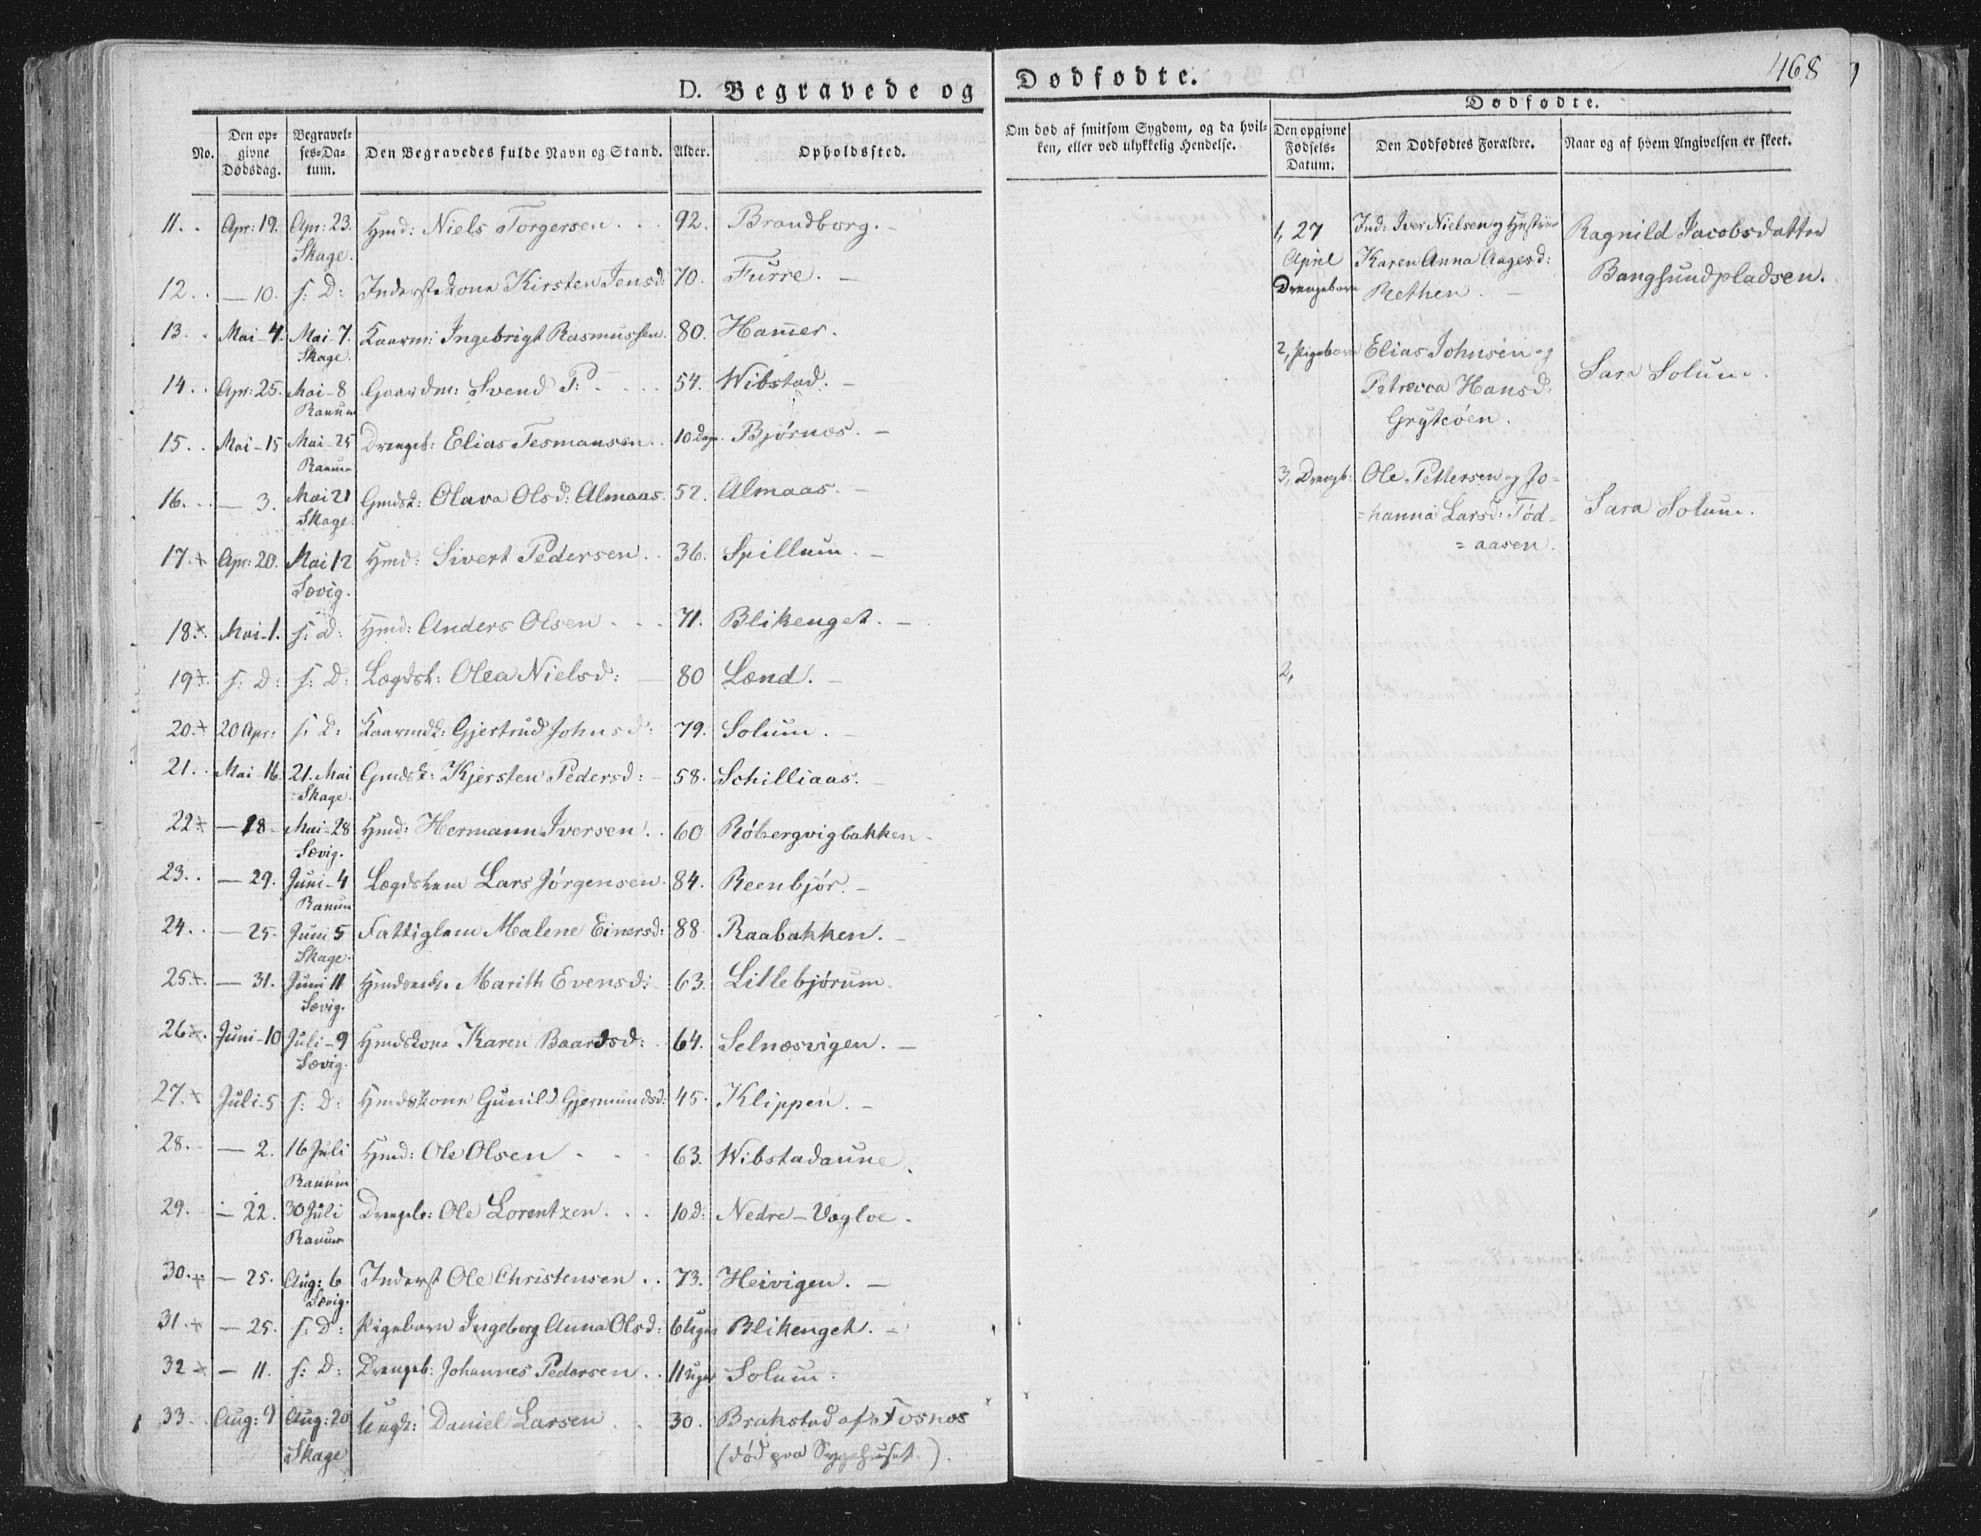 468
D. Begravede og
Dødfødte.
No.
Den opgivne Dødsdag.
Begravelses-Datum.
Den Begravedes fulde Navn og Stand.
Alder.
Opholdssted.
Om død af smitsom Sygdom, og da hvilken, eller ved ulykkelig Hendelse.
Dødfødte.
Den opgivne Fødsels-Datum.
Den Dødfødtes Forældre.
Naar og af hvem Angivelsen er skeet.
11. Apr: 19. Apr: 23. Skage. Hmd: Niels Torgersen. 92. Brandborg.
12. — 10. s: D: Inderstkone Kirsten Jensd: 70. Furre.
13. Mai 4. Mai 7. Skage. Kaarm: Ingebrigt Rasmussen. 80. Ham̄er.
14. Apr: 25. Mai 8 Ranum Gaardm: Svend P: 54. Wibstad.
15. Mai 15 Mai 25 Ranum Drengeb: Elias Tesmansen. 10 Dage. Bjørnes.
16. — 3. Mai 21 Skage. Gmdsk: Olava Olsd: Almaas. 52. Almaas.
17. + Apr: 20. Mai 12 Sævig. Hmd: Sivert Pedersen. 36. Spillum.
18. + Mai 1. s: d: Hmd: Anders Olsen 71. Blikenget.
19 + s: D: s: D: Lægdsk: Olea Nielsd: 80 Lænd.
20. + 20 Apr: s: D: Kaarmdk: Gjertrud Johnsd: 79. Solum.
21. Mai 16. 21. Mai Skage. Gmdsk: Kjersten Pedersd: 58. Schilliaas.
22 + — 18 Mai 28 Sævig. Hmd: Hermann Iversen. 60 Røbergvigbakken
23. — 29. Juni 4 Ranum Lægdslem Lars Jørgensen. 84. Reenbjør.
24. — 25. Juni 5 Skage. Fattiglem Malene Einersd: 88 Raabakken.
25 + — 31. Juni 11 Sævig. Marith Evensd: 63. Lillebjørum.
26 + Juni 10 Juli 9 Sævig. Hmdskone Karen Baardsd: 64. Selnæsvigen.
27. + Juli 5 s: D: Hmdskone Gunild Gjermundsd: 45. Klippen.
28. — 2. 16 Juli Ranum Hmd: Ole Olsen 63. Wibstadaune.
29. — 22. 30 Juli Ranum Drengeb: Ole Lorentzen. 10 d: Nedre-Vogloe.
30. + — 25. Aug: 6 Sævig. Inderst Ole Christensen 73. Heivigen.
31. + — 25. s: D: Pigebarn Ingeborg Anna Olsd: 6 Uger Blikenget.
32 + — 11. s: D: Drengeb: Johannes Pedersen 11 uger Solum.
33. Aug: 9 Aug: 20 Skage Ungk: Daniel Larsen 30. Brakstad af Fosnes
(død paa Sygehuset.)
1, 27 April Drengebarn
Ind: Iver Nielsen og Hustrue
Karen Anna Aagesd:
Rethen.
Ragnild Jacobsdatter
Bangsundpladsen.
2, Pigebarn
Elias Johnsen og
Petricca Hansd:
Grytøen.
Sara Solum.
3, Drengb:
Ole Pettersen og Jo-
=hanna Larsd: Tød-
=aasen.
Sara Solum.
2,